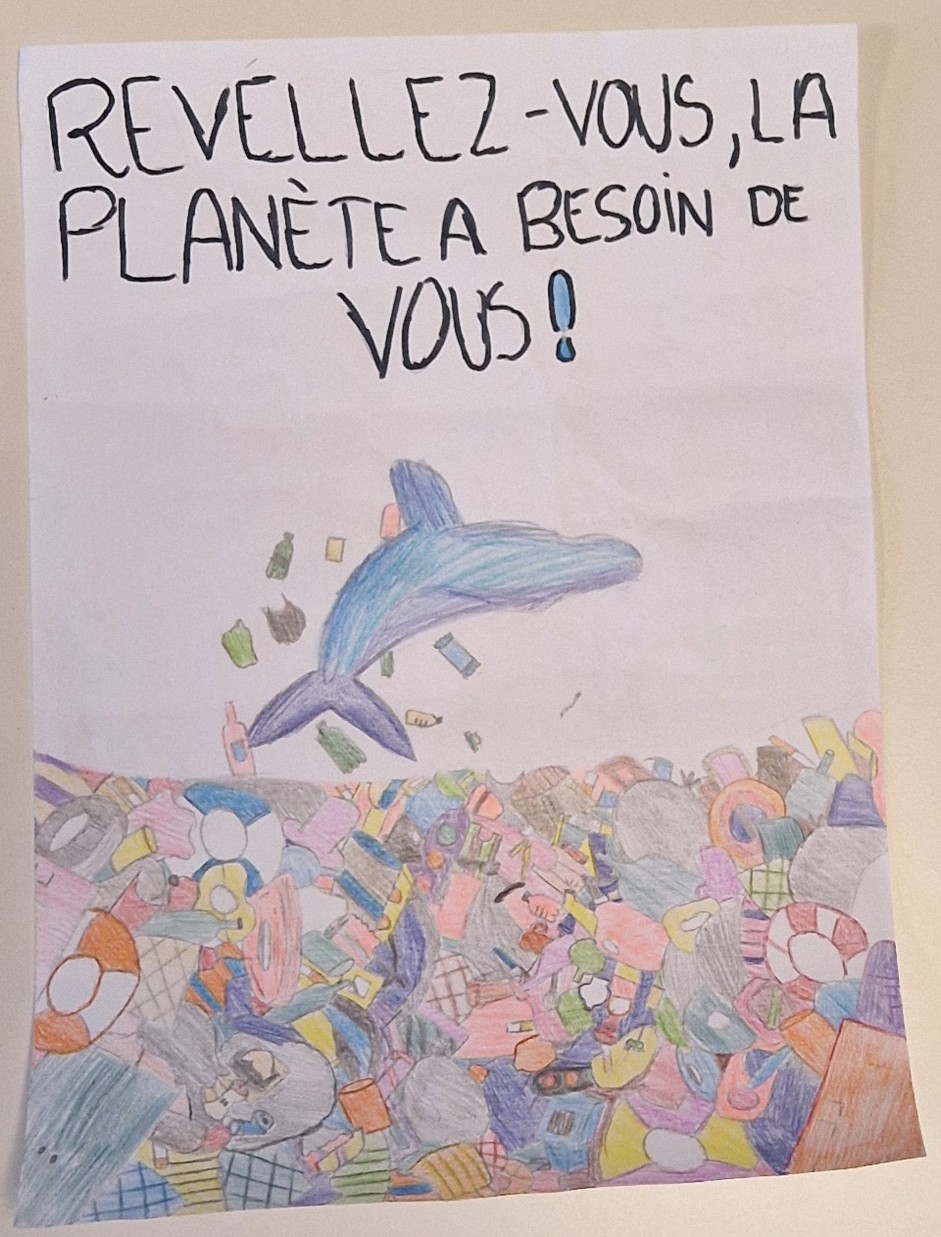 REVELLEZ-VOUS, LA
PLANÈTE A BESOIN DE
VOUS!